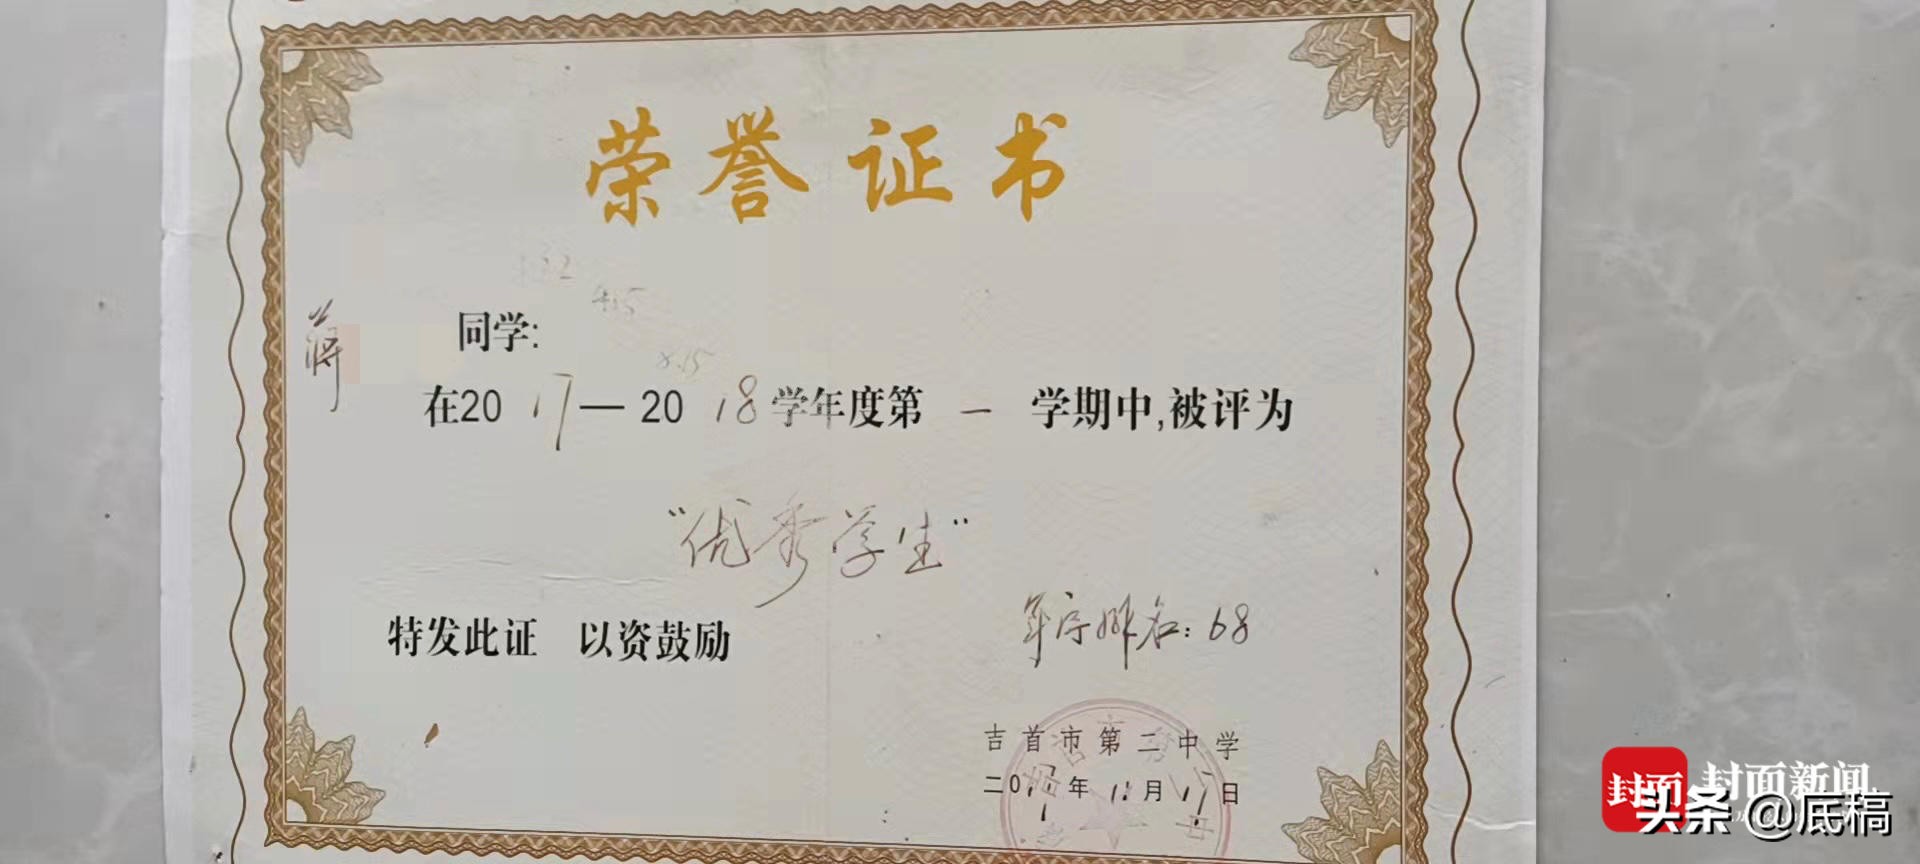 荣誉证书
蒋 同学:
在2017—2018学年度第一学期中,被评为
"优秀学生"
特发此证 以资鼓励
年序排名:68
吉首市第二中学
二0 年 月 日
封面 封面新闻
头条 @底稿